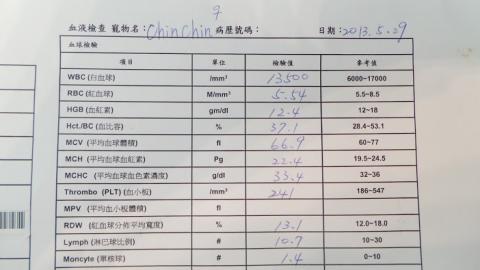 9
血液檢查 寵物名：ChinChin 病歷號碼： 日期：2013.5.29
血球檢驗
項目 單位 檢驗值 參考值
WBC (白血球) /mm³ 13500 6000~17000
RBC (紅血球) M/mm³ 5.54 5.5~8.5
HGB (血紅素) gm/dl 12.4 12~18
Hct./BC (血比容) % 37.1 28.4~53.1
MCV (平均血球體積) fl 66.9 60~77
MCH (平均血球血紅素) Pg 22.4 19.5~24.5
MCHC (平均血球血色素濃度) g/dl 33.4 32~36
Thrombo (PLT) (血小板) /mm³ 241 186~547
MPV (平均血小板體積) fl
RDW (紅血球分佈平均寬度) % 13.1 12.0~18.0
Lymph (淋巴球比例) # 10.7 10~30
Moncyte (單核球) # 1.4 0~10